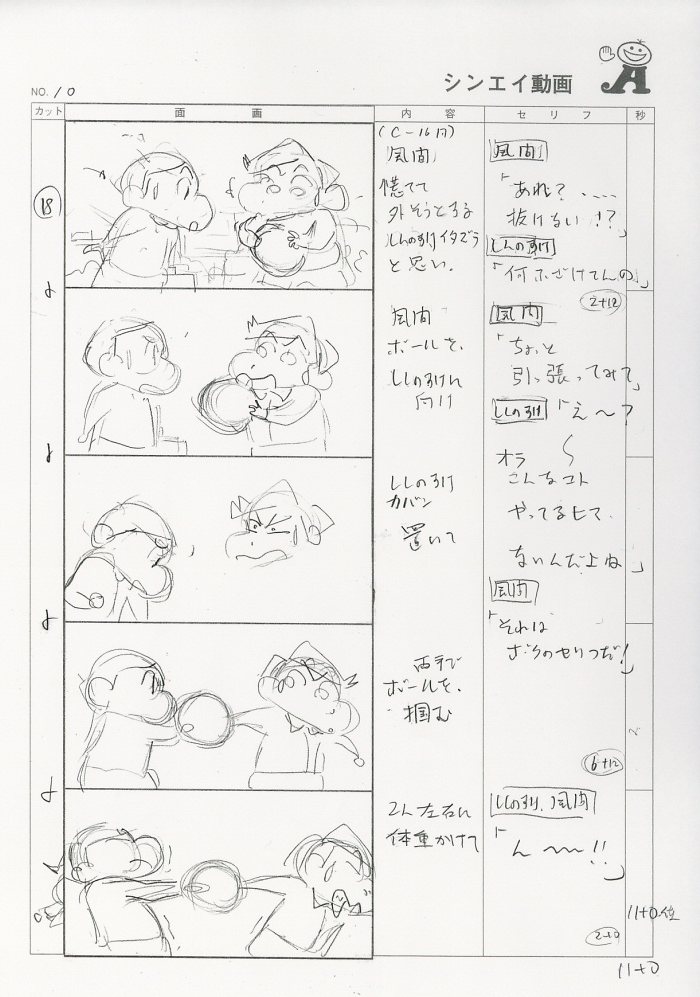 シンエイ動画
NO. 10
カット
画面
内容
セリフ
秒
18
(C-16同)
風間
慌てて
外そうとする
しんのすけイタズラ
と思い、
風間
「あれ?....
抜けない!?」
しんのすけ
「何ホざけてんの」
2+12
風間
ボールを、
しんのすけに
向け
風間
「ちょっと
引っ張ってみて」
しんのすけ「え〜?
オラ
こんなコト
やってるヒマ
ないんだよね」
しんのすけ
カバン
置いて
風間
「それは
ボクのセリフだ!」
両手で
ボールを、
掴む
6+12
2人左右に
体重かけて
しんのすけ、風間
「ん〜〜!!」
2+0
11+0位
11+0